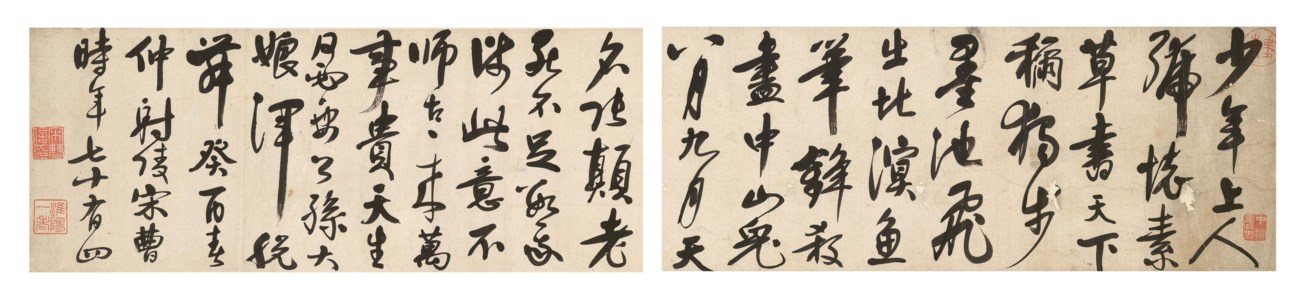 少年上人
號懷素
草書天下
稱獨步
墨池飛
出北溟魚
筆鋒殺
盡中山兔
八月九月天
名張顛老
死不足數我
師此意不
師古〻來萬
事貴天生
何必要公孫大
娘渾脫
舞 癸酉春
仲射陵宋曹
時年七十有四